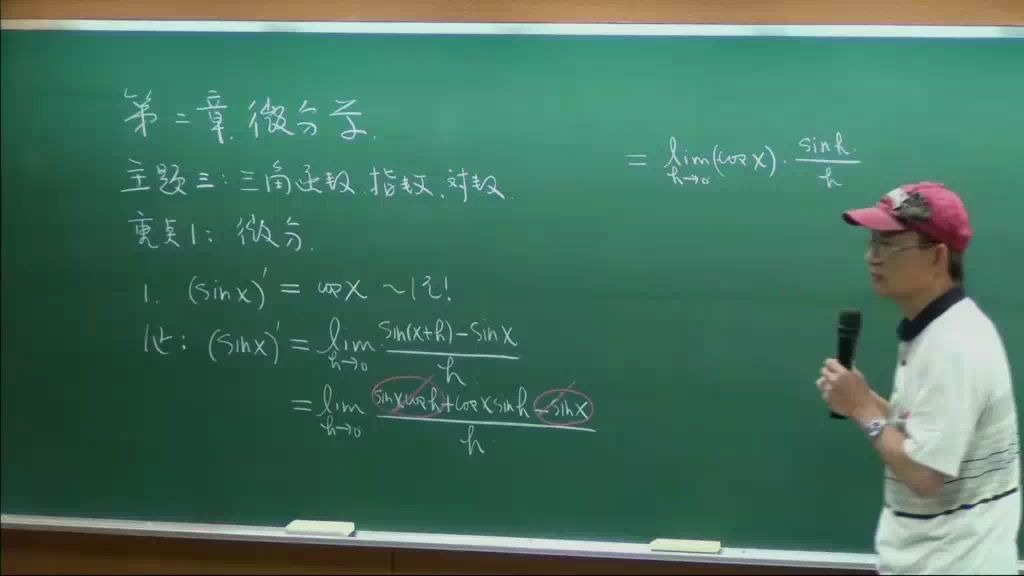 第二章 微分学
主题三:三角函数、指数、对数
重点1:微分
1. (sinx)' = cosx ~
(sinx)' = lim h→0 sin(x+h)-sinx / h
= lim h→0 sinxcosh+cosxsinh-sinx / h
= lim h→0 (cosx)·sinh / h